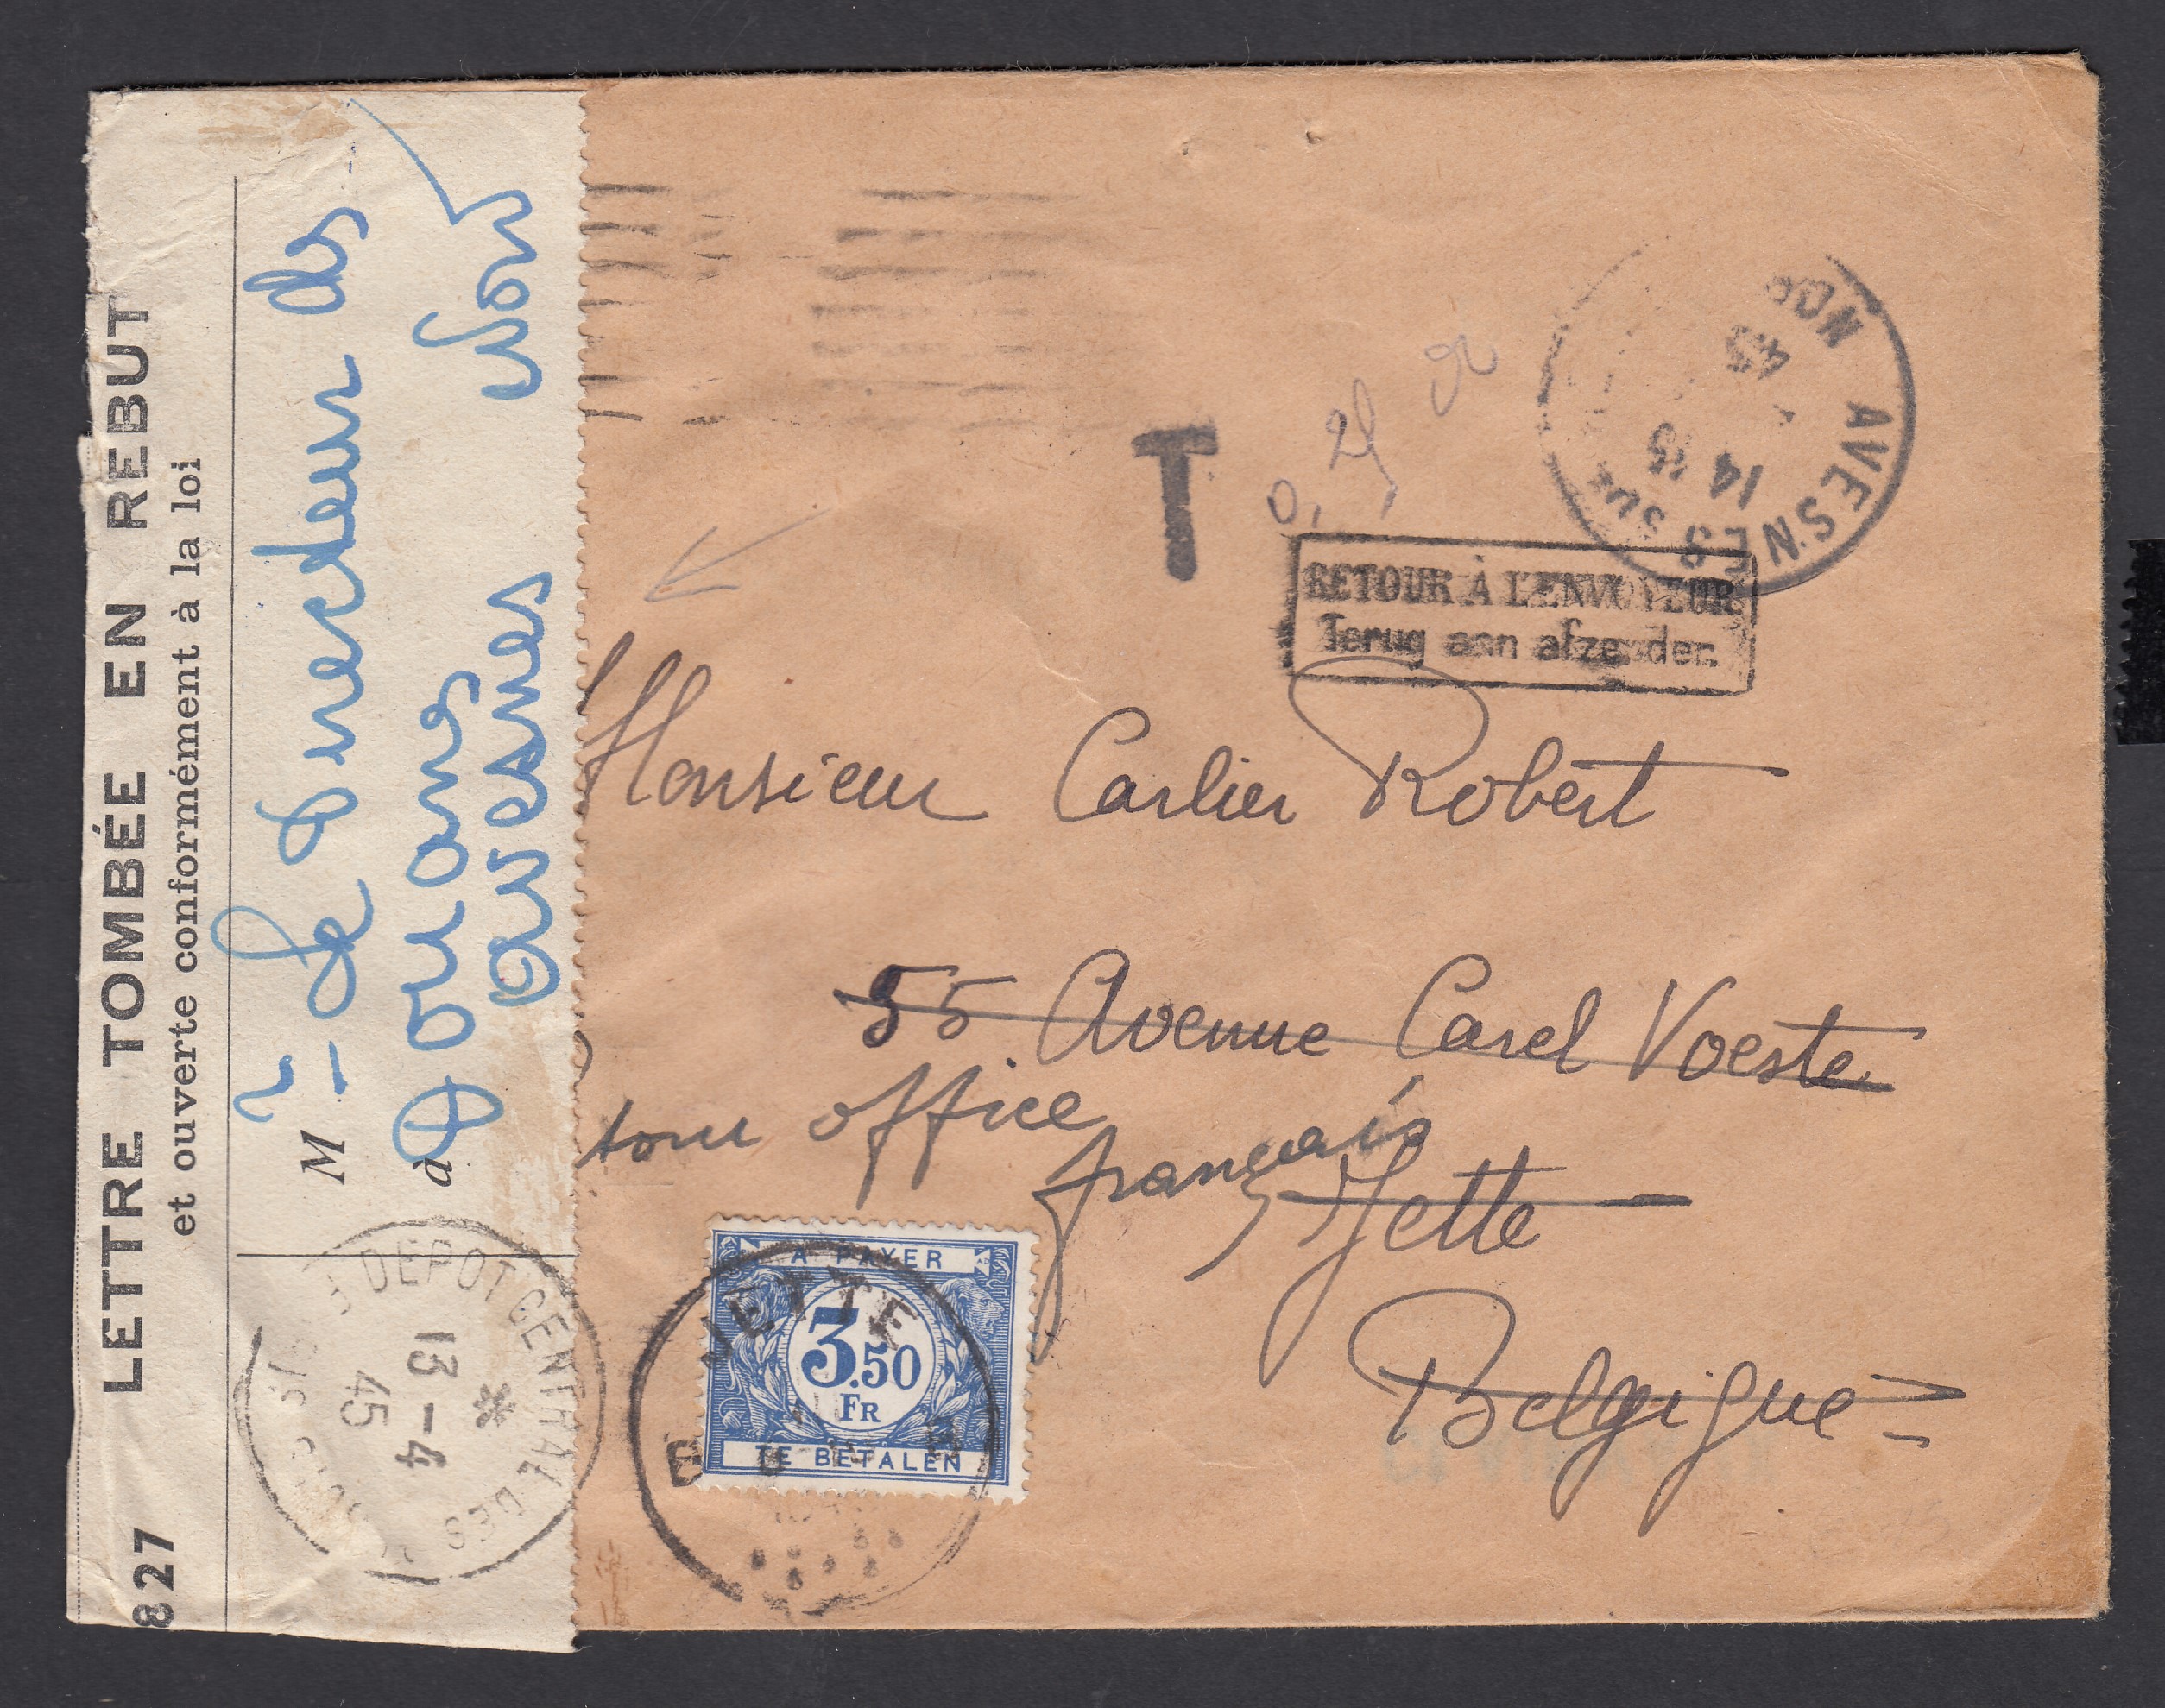 827 LETTRE TOMBÉE EN REBUT
et ouverte conformément à la loi
M r - Le Directeur des
à Douanes
avesnes Nord
DEPOT CENTRAL DES
13 - 4
45
AVESNES SUR
14 15
45
T
RETOUR À L'ENVOYEUR
Terug aan afzender.
Monsieur Carlier Robert
55 Avenue Carel Voeste
office
français
Jette
Belgique
A PAYER
3.50
FR
TE BETALEN
JETTE